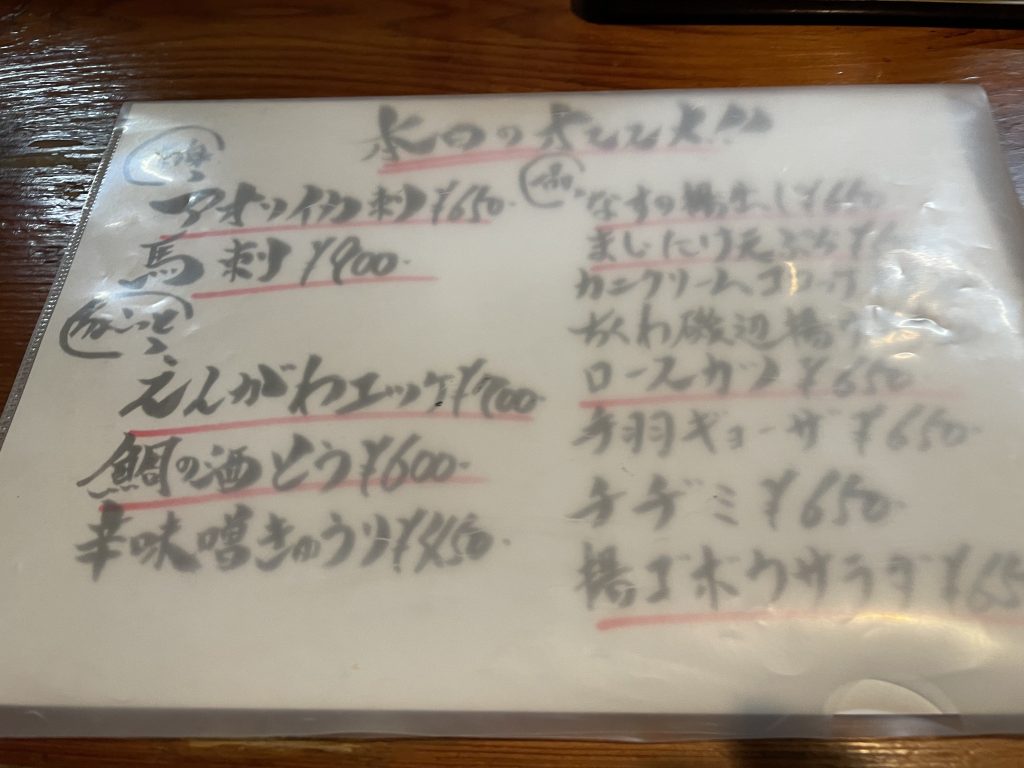 本日のオススメ!!
アオリイカ刺 ¥650-
馬刺 ¥900-
えんがわユッケ ¥700-
鯛の酒とう ¥600-
辛味噌きゅうり ¥450-
なすの揚出し ¥650
まいたけ天ぷら ¥6
カニクリームコロッケ
ちくわ磯辺揚
ロースカツ ¥650
手羽ギョーザ ¥650-
チヂミ ¥650-
揚ゴボウサラダ ¥65